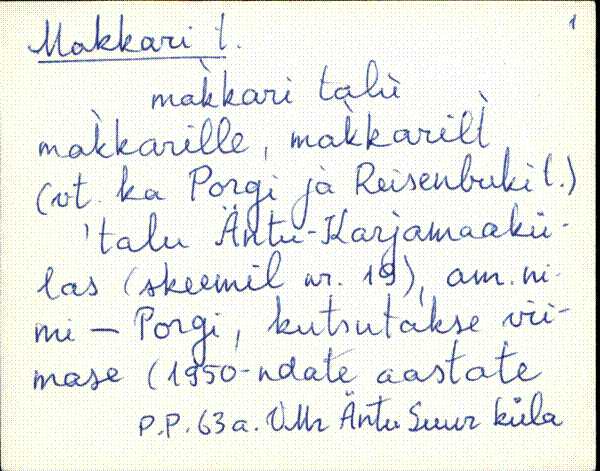 1
Makkari t.
mak̀kari talù
mak̀karille, mak̀karilt̀
(vt. ka Porgi ja Reisenbuki t.)
'talu Äntu-Karjamaakü-
las (skeemil nr. 19), am. ni-
mi — Porgi, kutsutakse vii-
mase (1950-ndate aastate
P.P. 63 a. VMr Äntu Suur küla